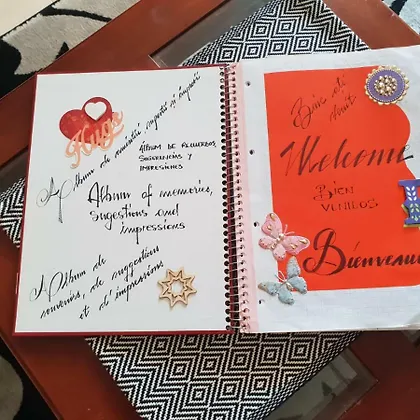 Hugs
Album de amintiri sugestii si impresii
ALBUM DE RECUERDOS,
SUGERENCIAS Y
IMPRESIONES
Album of memories,
sugestions and
impressions
Album de
souvenirs, de suggestions
et d'impressions
Bine ati
venit
Welcome
BIEN
VENIDOS
Bienvenue